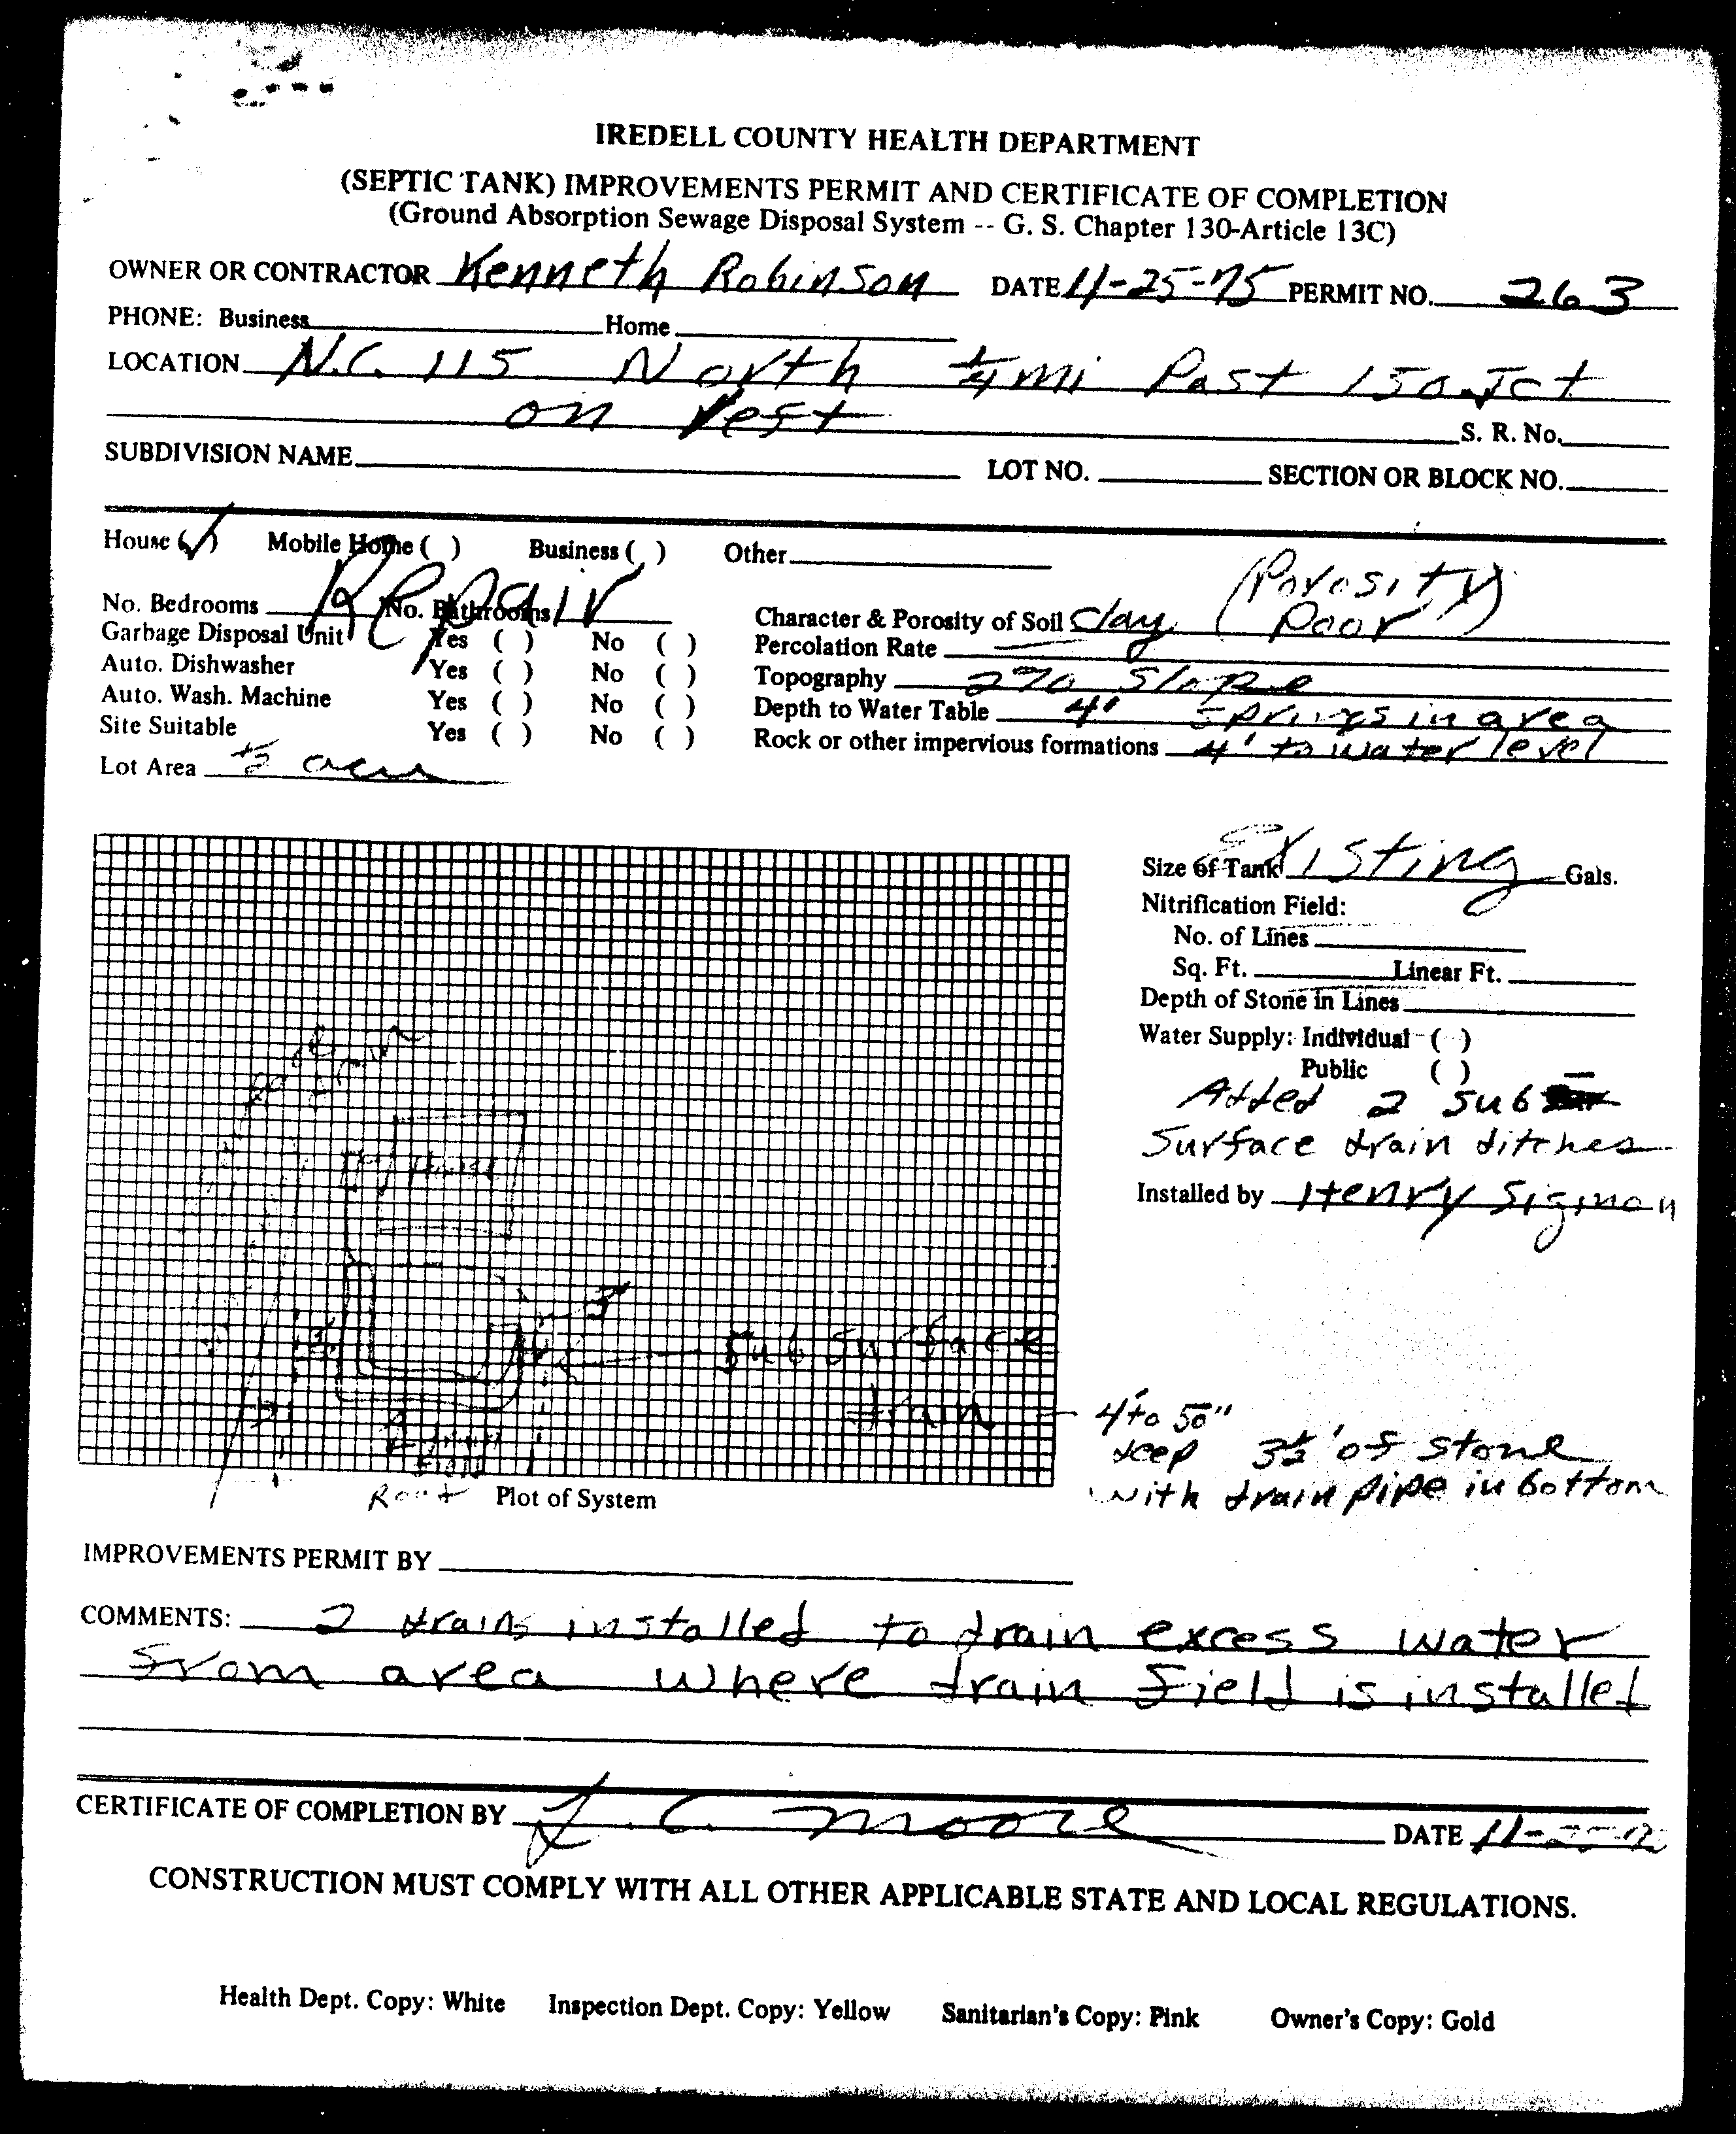 IREDELL COUNTY HEALTH DEPARTMENT
(SEPTIC TANK) IMPROVEMENTS PERMIT AND CERTIFICATE OF COMPLETION
(Ground Absorption Sewage Disposal System -- G. S. Chapter 130-Article 13C)
OWNER OR CONTRACTOR Kenneth Robinson DATE 11-25-75 PERMIT NO. 263
PHONE: Business Home
LOCATION N.C. 115 North 1/4 mi Past 150 Jct
on
S. R. No.
SUBDIVISION NAME LOT NO. SECTION OR BLOCK NO.
House (✓) Mobile Home ( ) Business ( ) Other
Repair
(Porosity
No. Bedrooms No. Bathrooms Character & Porosity of Soil Clay Poor)
Garbage Disposal Unit Yes ( ) No ( ) Percolation Rate —
Auto. Dishwasher Yes ( ) No ( ) Topography 2% Slope
Auto. Wash. Machine Yes ( ) No ( ) Depth to Water Table 4' springs in area
Site Suitable Yes ( ) No ( ) Rock or other impervious formations 4' to water level
Lot Area 1/2 acre
Size of Tank Existing Gals.
Nitrification Field:
No. of Lines
Sq. Ft. Linear Ft.
Depth of Stone in Lines
Water Supply: Individual ( )
Public ( )
Added 2 sub
Surface drain ditches
Installed by Henry Sigmon
House
Sub Surface
drain
4' to 50"
deep 3 1/2' of stone
with drain pipe in bottom
Plot of System
IMPROVEMENTS PERMIT BY
COMMENTS: 2 drains installed to drain excess water
from area where drain field is installed
CERTIFICATE OF COMPLETION BY L. C. Moore DATE 11-25-75
CONSTRUCTION MUST COMPLY WITH ALL OTHER APPLICABLE STATE AND LOCAL REGULATIONS.
Health Dept. Copy: White Inspection Dept. Copy: Yellow Sanitarian's Copy: Pink Owner's Copy: Gold